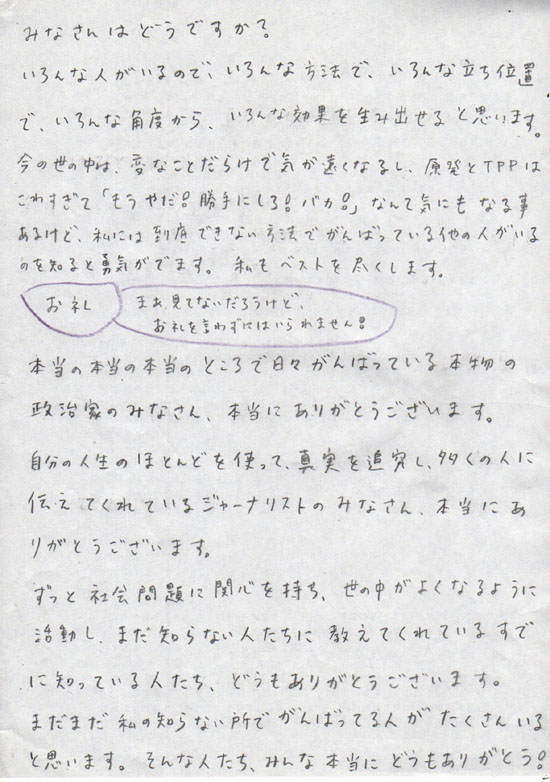 みなさんはどうですか?
いろんな人がいるので、いろんな方法で、いろんな立ち位置
で、いろんな角度から、いろんな効果を生み出せると思います。
今の世の中は、変なことだらけで気が遠くなるし、原発とTPPは
こわすぎて「もうやだ!勝手にしろ!バカ!」なんて気にもなる事
あるけど、私には到底できない方法でがんばっている他の人がいる
のを知ると勇気がでます。私もベストを尽くします。
お礼
まぁ、見てないだろうけど、
お礼を言わずにはいられません!
本当の本当の本当のところで日々がんばっている本物の
政治家のみなさん、本当にありがとうございます。
自分の人生のほとんどを使って、真実を追究し、多くの人に
伝えてくれているジャーナリストのみなさん、本当にあ
りがとうございます。
ずっと社会問題に関心を持ち、世の中がよくなるように
活動し、まだ知らない人たちに教えてくれているすで
に知っている人たち、どうもありがとうございます。
まだまだ私の知らない所でがんばってる人がたくさんいる
と思います。そんな人たち、みんな本当にどうもありがとう!